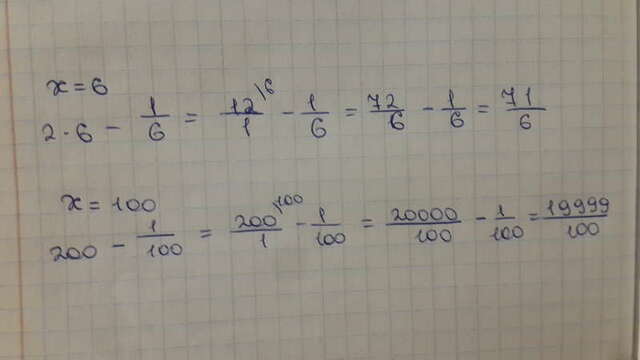 x = 6
2 · 6 − 1/6 = 12\6/1 − 1/6 = 72/6 − 1/6 = 71/6
x = 100
200 − 1/100 = 200\100/1 − 1/100 = 20000/100 − 1/100 = 19999/100